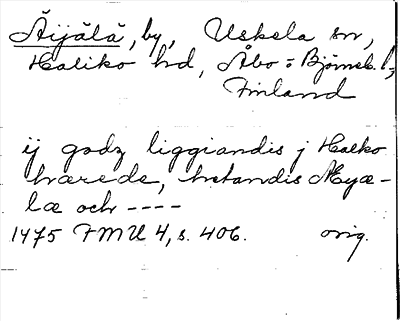 Äijälä, by, Uskela sn,
Haliko hd, Åbo = Björneb. l.,
Finland
ij godz liggiandis j Halko
hærede, hetandis Myæ-
læ och ----
1475 FMU 4, s. 406. orig.